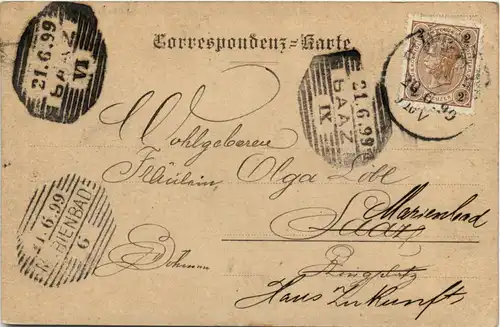 Correspondenz-Karte
21.6.99
SAAZ
VI
21.6.99
SAAZ
IX
2 2
2 2
6 99
6.99
MARIENBAD
6
Wohlgeboren
Fräulein Olga
Marienbad
Saaz
Böhmen
Ringplatz
Haus Zukunft